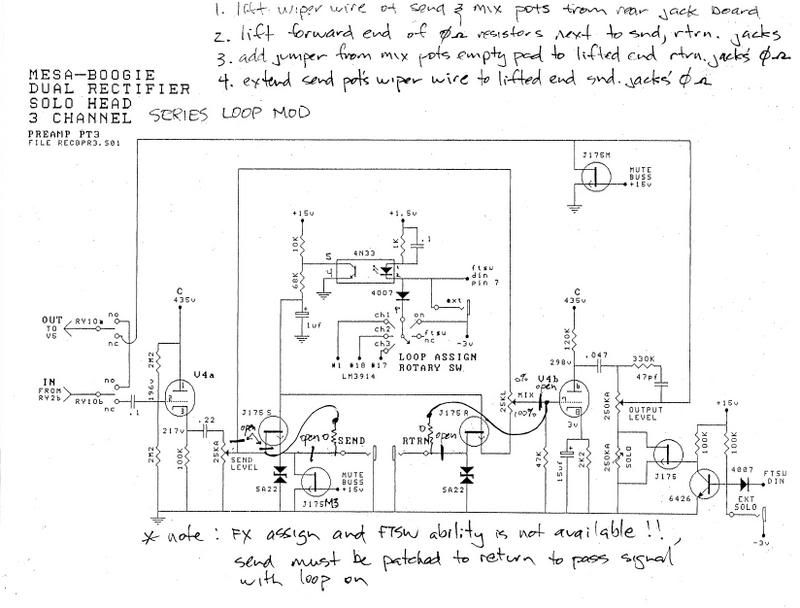 1. lift wiper wire of send & mix pots from rear jack board
2. lift forward end of 0Ω resistors next to snd, rtrn. jacks
3. add jumper from mix pots empty pad to lifted end rtrn. jacks' 0Ω
4. extend send pot's wiper wire to lifted end snd. jacks' 0Ω
MESA-BOOGIE
DUAL RECTIFIER
SOLO HEAD
3 CHANNEL SERIES LOOP MOD
PREAMP PT3
FILE RECBPR3.S01
J175M
MUTE
BUSS
+15v
+15v
+1.5v
10K
4N33
1K
.1
5
4
2
68K
4007
ftsw
din
pin 7
ext
1uf
ch1
on
ch2
ftsw
nc
ch3
-3v
#1 #10 #17
LM3914
LOOP ASSIGN
ROTARY SW.
C
435v
C
435v
OUT
TO
V5
RY10a
no
nc
IN
FROM
RY2b
RY10b
no
nc
.1
2M2
196v
U4a
217v
.22
2M2
100K
25KA
SEND
LEVEL
open
J175 S
open
0
SEND
0
RTRN
open
J175 R
SA22
SA22
MUTE
BUSS
+15v
J175M3
25KL
0%
MIX
100%
U4b
open
120K
298v
.047
330K
47pf
250KA
OUTPUT
LEVEL
3v
47K
15uf
2K2
250KA
SOLO
J175
100K
+15v
100K
6426
4007
FTSW
DIN
EXT
SOLO
-3v
* note : FX assign and FTSW ability is not available !!,
send must be patched to return to pass signal
with loop on